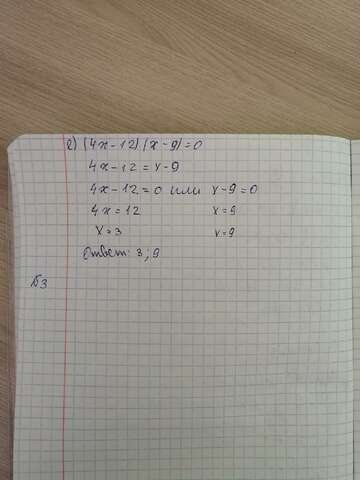 г) (4x-12)(x-9)=0
4x-12=x-9
4x-12=0 или x-9=0
4x=12 x=9
x=3 x=9
Ответ: 3; 9
№3